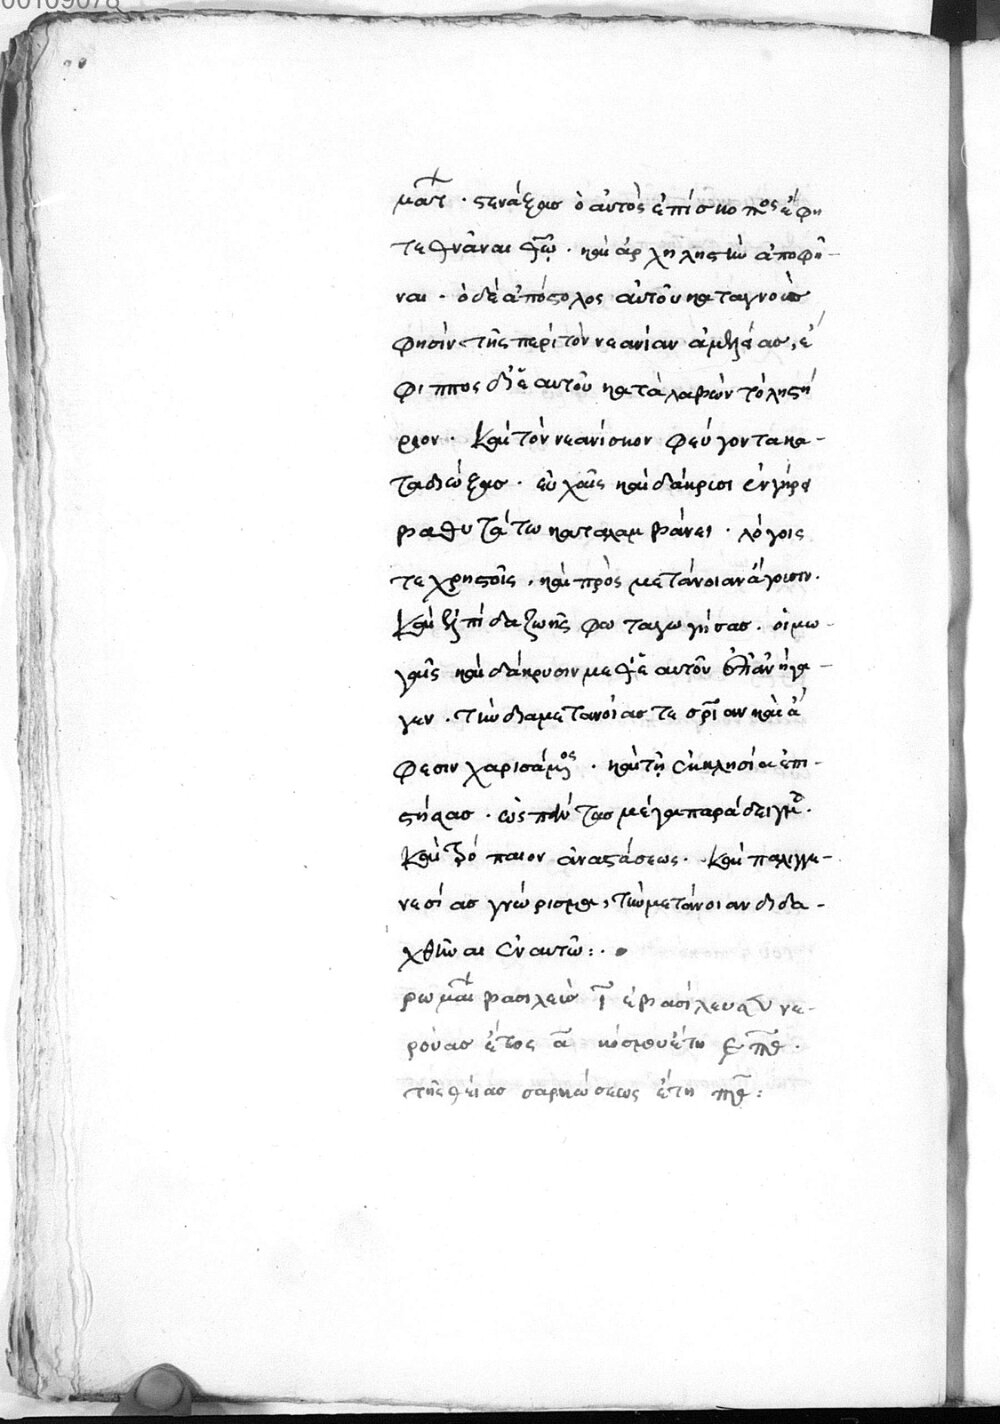 00109078
ματ(α). στενάξας ὁ αὐτὸς ἐπίσκοπος ἔφη
τεθνάναι θ(ε)ῷ. καὶ ἀρχηληστὴν ἀποφῆ-
ναι. ὁ δὲ ἀπόστολος αὐτοῦ καταγνοὺς
φησὶν τῆς περὶ τὸν νεανίαν ἀμελείας, ἔ
φιππος δι' ἑαυτοῦ καταλαβὼν τὸ ληστή
ριον. Καὶ τὸν νεανίσκον φεύγοντα κα-
ταδιώξας. εὐχαῖς καὶ δάκρισι ἐν γήρᾳ
βαθυτάτω καταλαμβάνει. λόγοις
τε χρηστοῖς, καὶ πρὸς μετάνοιαν ἄγουσιν.
Καὶ ἐλπίδα ζωῆς φωταγωγήσας. οἰμω-
γαῖς καὶ δάκρυσιν μεθ' ἑαυτοῦ ἐπανήγα-
γεν. τὴν διὰ μετανοίας τε σ(ωτη)ρίαν καὶ ἄ
φεσιν χαρισάμενος. καὶ τῇ ἐκκλησία ἐπι-
στήσας. ὡς πάντας μέγα παράδειγμα.
Καὶ τρόπαιον ἀναστάσεως. Καὶ παλιγγε-
νεσίας γνώρισμα, τὴν μετάνοιαν διδα-
χθῆναι ἐν αυτῶ:.
ρωμαί(ων) βασιλεὺς ι͞γ ἐβασίλευσεν νε-
ρούας ἔτος α͞ κόσμου ἔτη ͵ε͞φ͞π͞θ.
τῆς θείας σαρκώσεως ἔτη π͞θ: